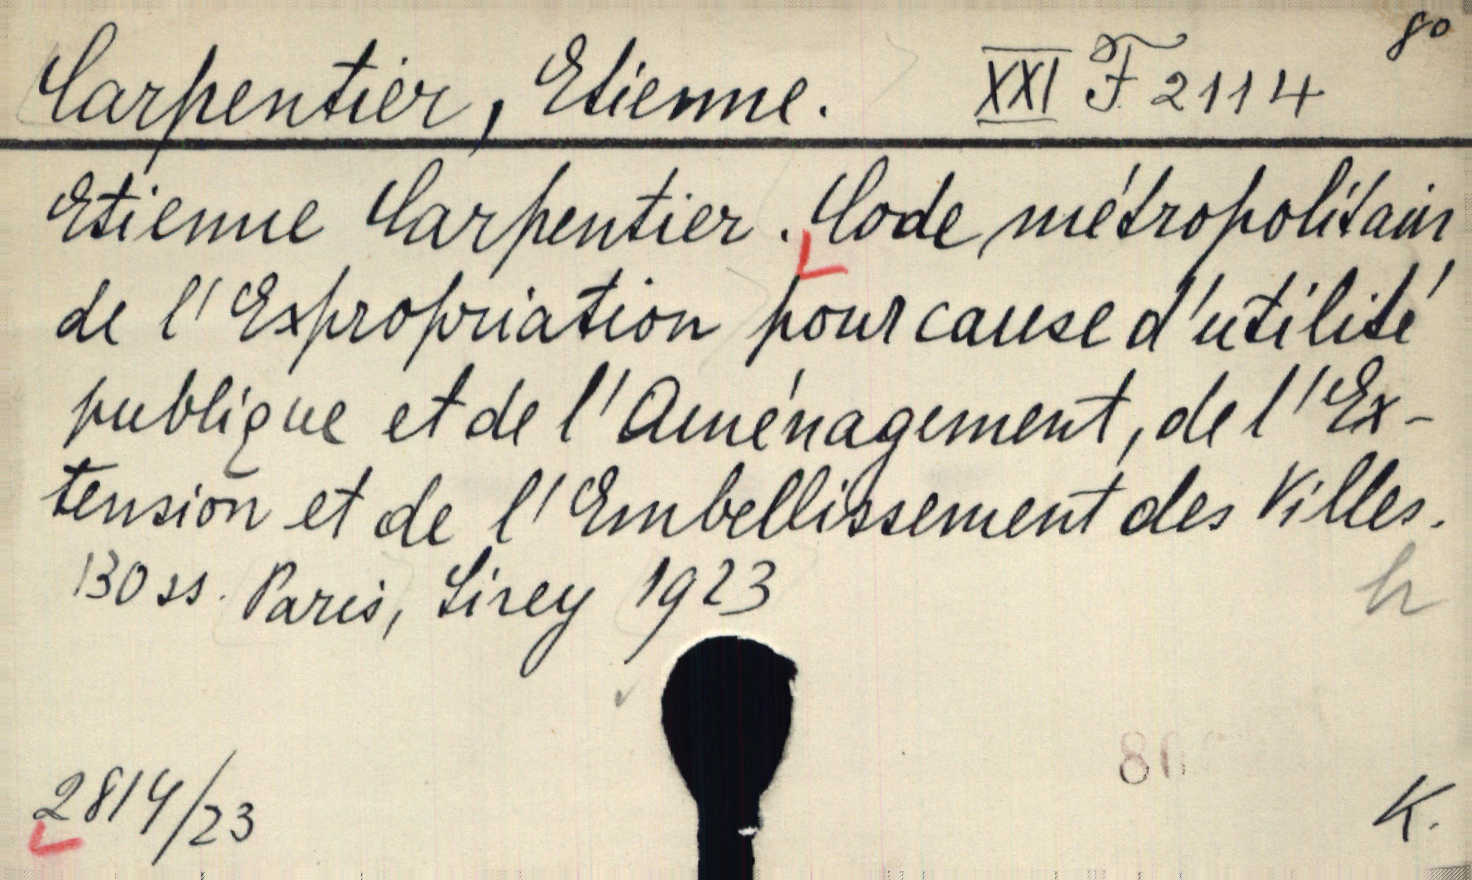 Carpentier, Etienne. XXI F. 2114 8o
Etienne Carpentier. Code métropolitain
de l'Expropriation pour cause d'utilité
publique et de l'Aménagement, de l'Ex-
tension et de l'Embellissement des Villes.
130 ss. Paris, Sirey 1923
h
80
2814/23
K.